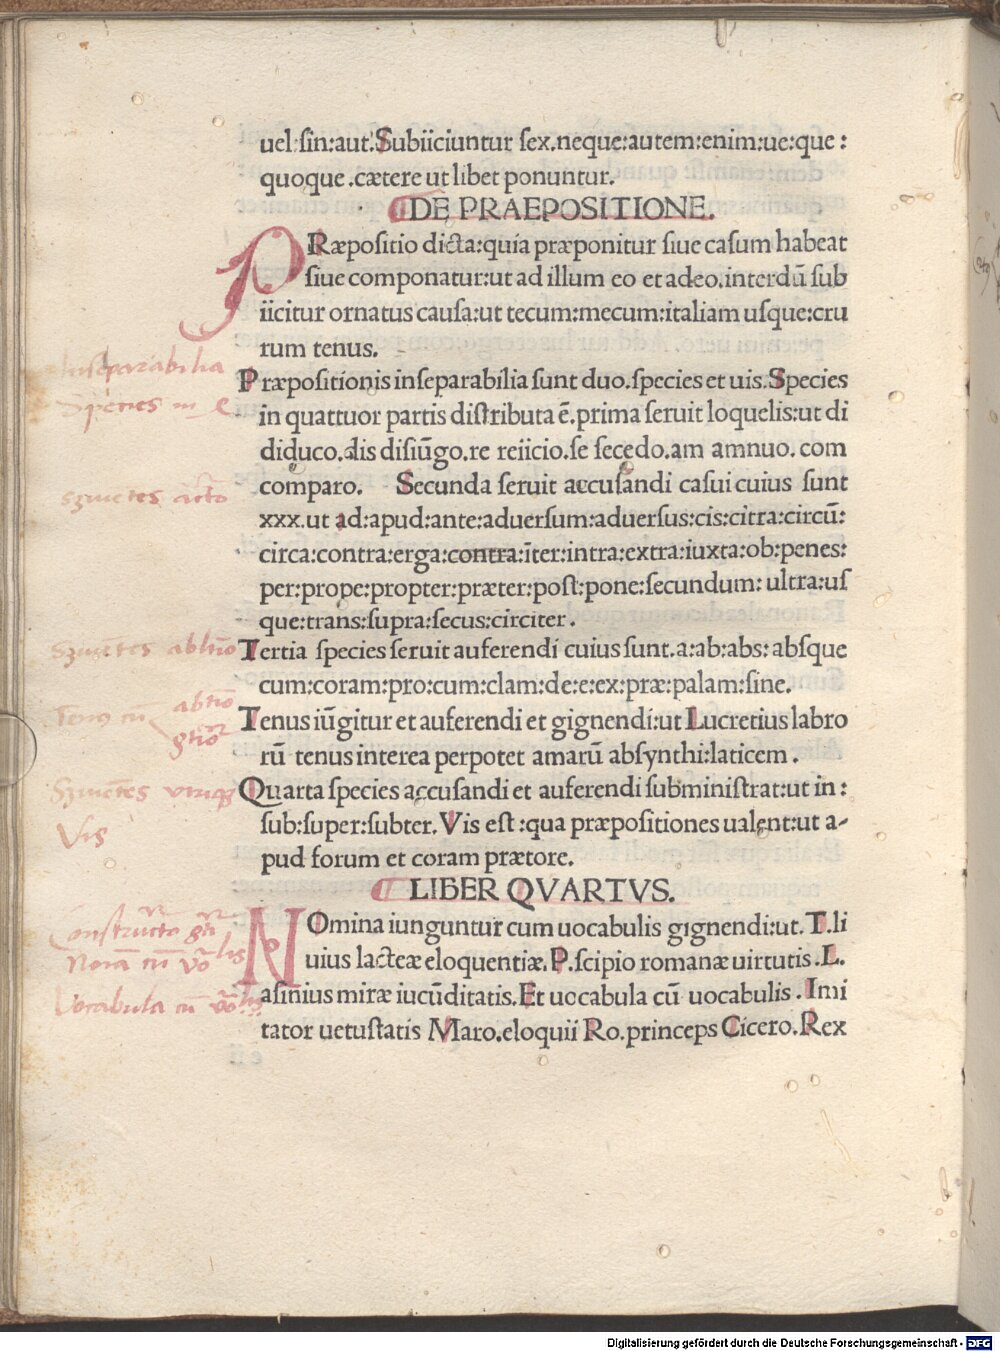 uel:sin:aut.Subiiciuntur sex.neque:autem:enim:ue:que:
quoque.cætere ut libet ponuntur.
DE PRAEPOSITIONE.
PRæpositio dicta:quia præponitur siue casum habeat
siue componatur:ut ad illum eo et adeo.interdū sub
iicitur ornatus causa:ut tecum:mecum:italiam usque:cru
rum tenus.
Inseparabilia
Præpositionis inseparabilia sunt duo.species et uis.Species
Species in
in quattuor partis distributa ē.prima seruit loquelis:ut di
diduco.dis disiūgo.re reiicio.se secedo.am amnuo.com
comparo. Secunda seruit accusandi casui cuius sunt
xxx.ut ad:apud:ante:aduersum:aduersus:cis:citra:circū:
circa:contra:erga:contra:īter:intra:extra:iuxta:ob:penes:
per:prope:propter:præter:post:pone:secundum:ultra:us
que:trans:supra:secus:circiter.
Tertia species seruit auferendi cuius sunt.a:ab:abs:absque
cum:coram:pro:cum:clam:de:e:ex:præ:palam:sine.
Tenus iūgitur et auferendi et gignendi:ut Lucretius labro
rū tenus interea perpotet amarū absynthi:laticem.
Quarta species accusandi et auferendi subministrat:ut in:
sub:super:subter.Vis est:qua præpositiones ualent:ut a-
Vis
pud forum et coram prætore.
LIBER QVARTVS.
NOmina iunguntur cum uocabulis gignendi:ut.T.li
uius lacteæ eloquentiæ.P.scipio romanæ uirtutis.L.
asinius miræ iucūditatis.Et uocabula cū uocabulis.Imi
Vocabula cū
tator uetustatis Maro.eloquii Ro.princeps Cicero.Rex
Digitalisierung gefördert durch die Deutsche Forschungsgemeinschaft - DFG